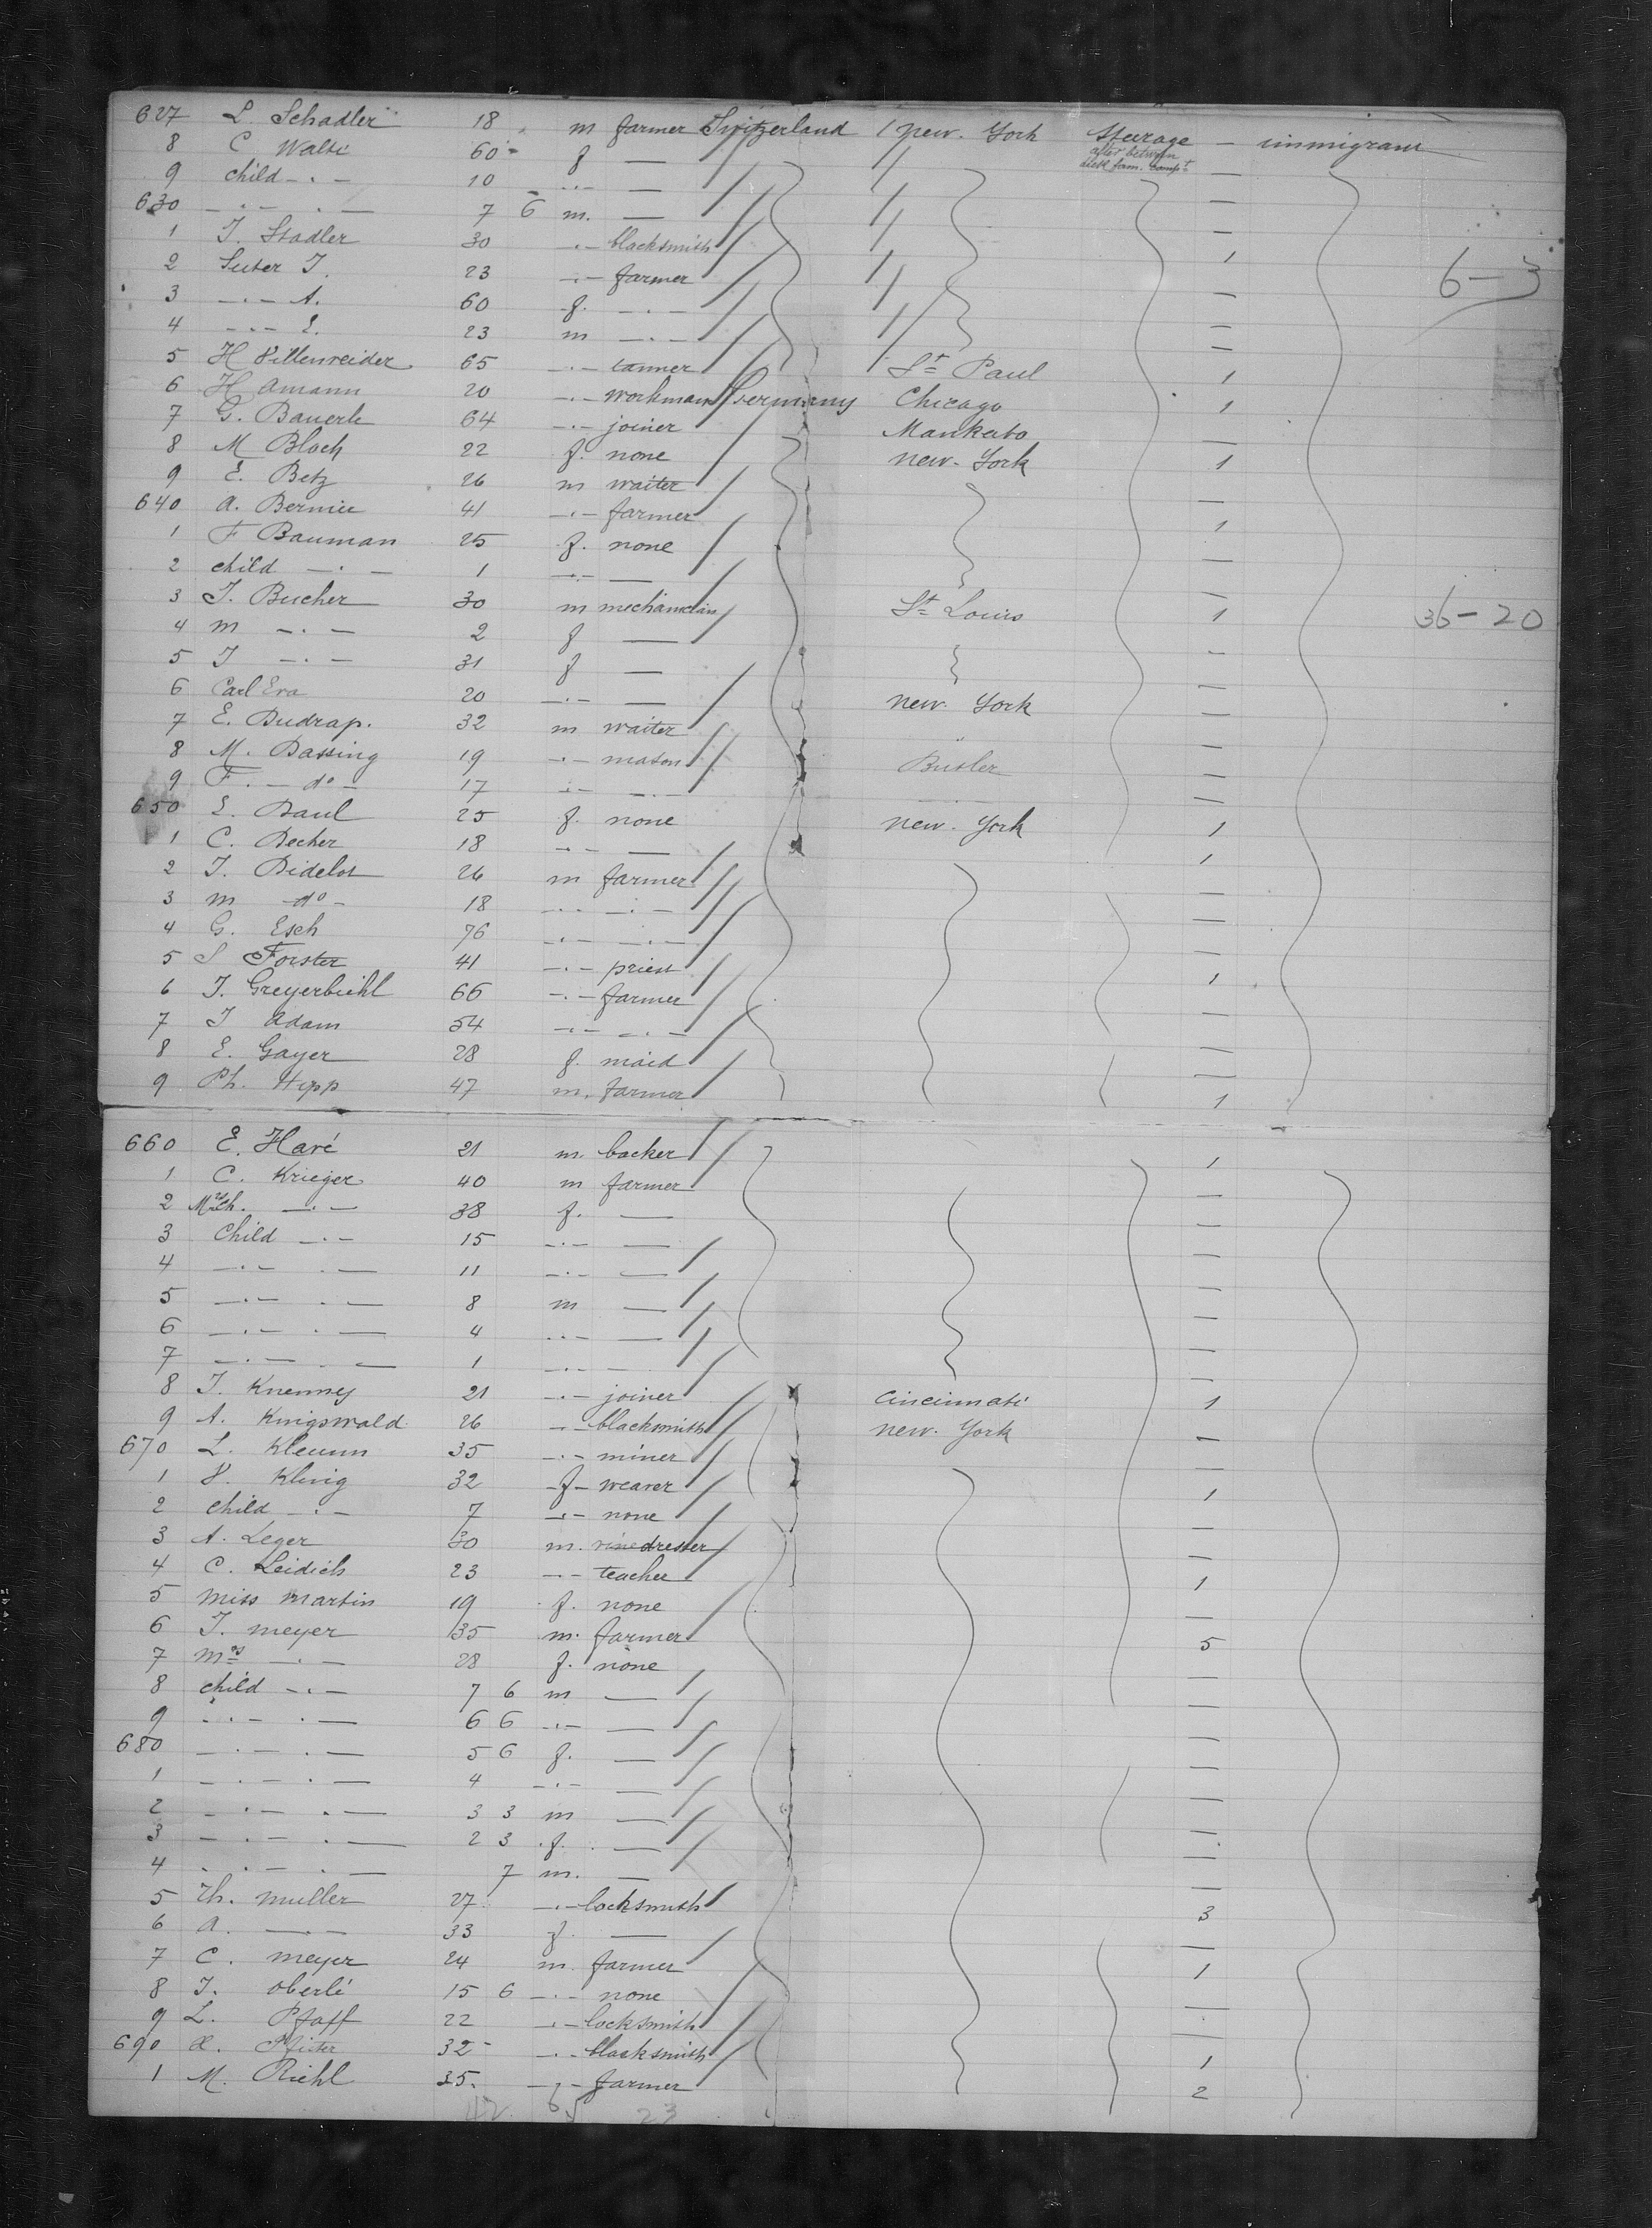 627 L. Schadler 18 m farmer Switzerland / new. York Steerage — immigrant
8 C Walti 60 f — after between deck fam. compt —
9 child -.- 10 -.- — —
630 -.- . — 7 6 m. — —
1 J. Stadler 30 -.- blacksmith 1
2 Suter J. 23 -.- farmer — 6-3
3 -.- A. 60 f. -.- —
4 -.- E. 23 m -.- —
5 H 65 -.- tanner St Paul 1
6 H Amann 20 -.- workman Germany Chicago 1
7 G. Bauerle 64 -.- joiner Mankato —
8 M Bloch 22 f. none new. York 1
9 E. Betz 26 m waiter —
640 A. Bernier 41 -.- farmer 1
1 F Bauman 25 f. none —
2 child -.- 1 -.- — —
3 J. Bucher 30 m St Louis 1 36-20
4 m -.- 2 f — —
5 J -.- 31 f — —
6 Carl Eva 20 -.- — new. York —
7 E. Dudrap. 32 m waiter —
8 M. Dassing 19 -.- mason Butler —
9 F. - do - 17 -.- -.- —
650 E. Daul 25 f. none new. York 1
1 C. Decker 18 -.- — 1
2 J. Didelot 26 m farmer —
3 m -do- 18 -.- -.- —
4 G. Esch 76 -.- -.- —
5 S Forster 41 -.- priest 1
6 J. Greyerbiehl 66 -.- farmer —
7 J Adam 54 -.- -.- —
8 E. Gayer 28 f. maid —
9 Ph. Hipp 47 m. farmer 1
660 E. Havé 21 m. backer 1
1 C. Krieger 40 m farmer —
2 -.- 38 f. — —
3 Child -.- 15 -.- — —
4 -.- . — 11 -.- — —
5 -.- . — 8 m — —
6 -.- . — 4 -.- — —
7 -.- . — 1 -.- — —
8 J. Knenney 21 -.- joiner Cincinnati 1
9 A. Kingswald 26 -.- blacksmith new. York —
670 L. Klemm 35 -.- miner —
1 V. Kling 32 -f- weaver 1
2 child -.- 7 -.- none —
3 A. Leger 30 m. vinedresser —
4 C. Leidich 23 -.- teacher 1
5 Miss Martin 19 f. none —
6 J. meyer 35 m. farmer 5
7 Mrs -.- 28 f. none —
8 child -.- 7 6 m — —
9 -.- . — 6 6 -.- — —
680 -.- . — 5 6 f. — —
1 -.- . — 4 -.- — —
2 -.- . — 3 3 m — —
3 -.- . — 2 3 f. — —
4 -.- . — 7 m. — —
5 Th. muller 27 -.- locksmith 3
6 A. -.- 33 f. — —
7 C. meyer 24 m. farmer 1
8 J. oberlé 15 6 -.- none —
9 L. Pfaff 22 -.- locksmith —
690 32 -.- blacksmith 1
1 M. Riehl 35. -.- farmer 2
42 65 23